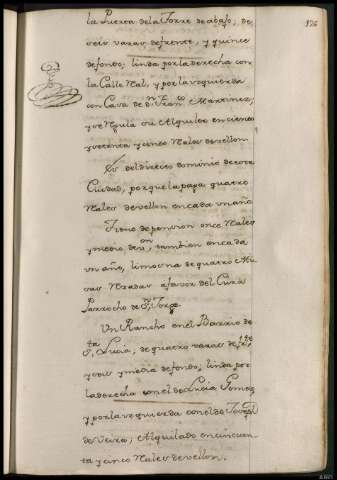 126
la Puerta de la Torre de abajo, de
seis varas de frente, y quince
de fondo; linda por la derecha con
la Calle Rl, y por la izquierda
con Casa de Dn Franco Martinez,
y se regula su Alquiler en ciento
y setenta y cinco Rales de vellon
Es del directo dominio de esta
Ciudad, por que la paga quatro
Rales de vellon en cada un año
Tiene de pension once Rales
y medio de von, tambien en cada
un año, limosna de quatro Mi
sas Rezadas a favor del Cura
Parrocho de Sn Jorge
Un Rancho en el Barrio de
Sta Lucia, de quatro varas de frte
y seis y media de fondo; linda por
la derecha con el de Lucia Gomez
y por la izquierda con el de
de Neira; Alquilado en cincuen
ta y cinco Rales de vellon.